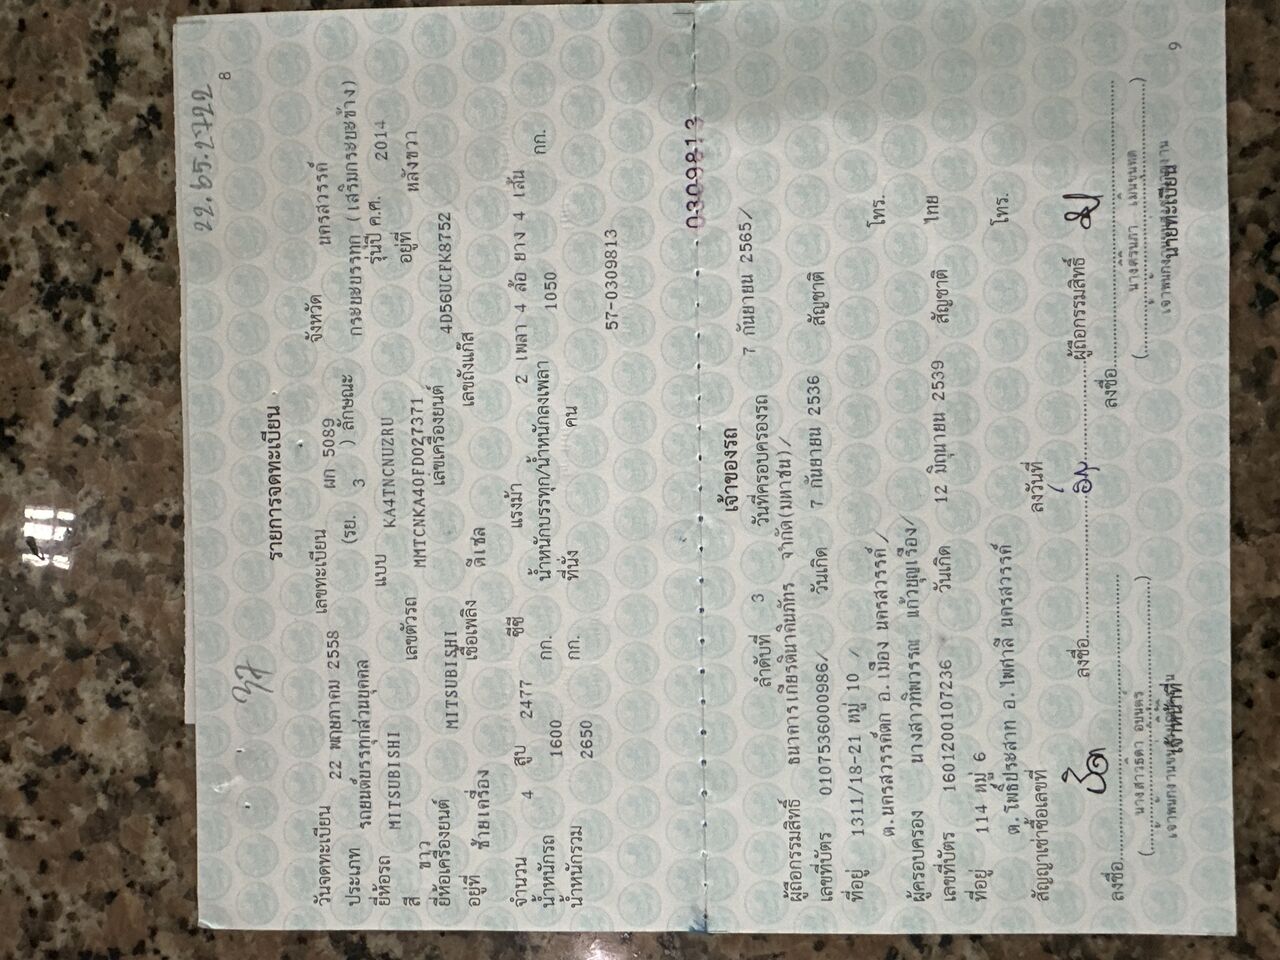 22.65.2722
8
รายการจดทะเบียน
วันจดทะเบียน 22 พฤษภาคม 2558 เลขทะเบียน ผก 5089 จังหวัด นครสวรรค์
ประเภท รถยนต์บรรทุกส่วนบุคคล (รย. 3 ) ลักษณะ กระบะบรรทุก (เสริมกระบะข้าง)
ยี่ห้อรถ MITSUBISHI แบบ KA4TNCNUZRU รุ่นปี ค.ศ. 2014
สี ขาว เลขตัวรถ MMTCNKA40FD027371 อยู่ที่ หลังขวา
ยี่ห้อเครื่องยนต์ MITSUBISHI เลขเครื่องยนต์ 4D56UCFK8752
อยู่ที่ ซ้ายเครื่อง เชื้อเพลิง ดีเซล เลขถังแก๊ส
จำนวน 4 สูบ 2477 ซีซี แรงม้า 2 เพลา 4 ล้อ ยาง 4 เส้น
น้ำหนักรถ 1600 กก. น้ำหนักบรรทุก/น้ำหนักลงเพลา 1050 กก.
น้ำหนักรวม 2650 กก. ที่นั่ง คน
57-0309813
0309813
เจ้าของรถ
ลำดับที่ 3 วันที่ครอบครองรถ 7 กันยายน 2565/
ผู้ถือกรรมสิทธิ์ ธนาคารเกียรตินาคินภัทร จำกัด(มหาชน)/
เลขที่บัตร 0107536000986/ วันเกิด 7 กันยายน 2536 สัญชาติ
ที่อยู่ 1311/18-21 หมู่ 10 /
ต.นครสวรรค์ตก อ.เมือง นครสวรรค์/ โทร.
ผู้ครอบครอง นางสาวทิพวรรณ แก้วบุญเรือง/
เลขที่บัตร 1601200107236 วันเกิด 12 มิถุนายน 2539 สัญชาติ ไทย
ที่อยู่ 114 หมู่ 6
ต.โพธิ์ประสาท อ.ไพศาลี นครสวรรค์ โทร.
สัญญาเช่าซื้อเลขที่ ลงวันที่
ลงชื่อ ผู้ถือกรรมสิทธิ์
ลงชื่อ ลงชื่อ
เจ้าหน้าที่ นายทะเบียน
9